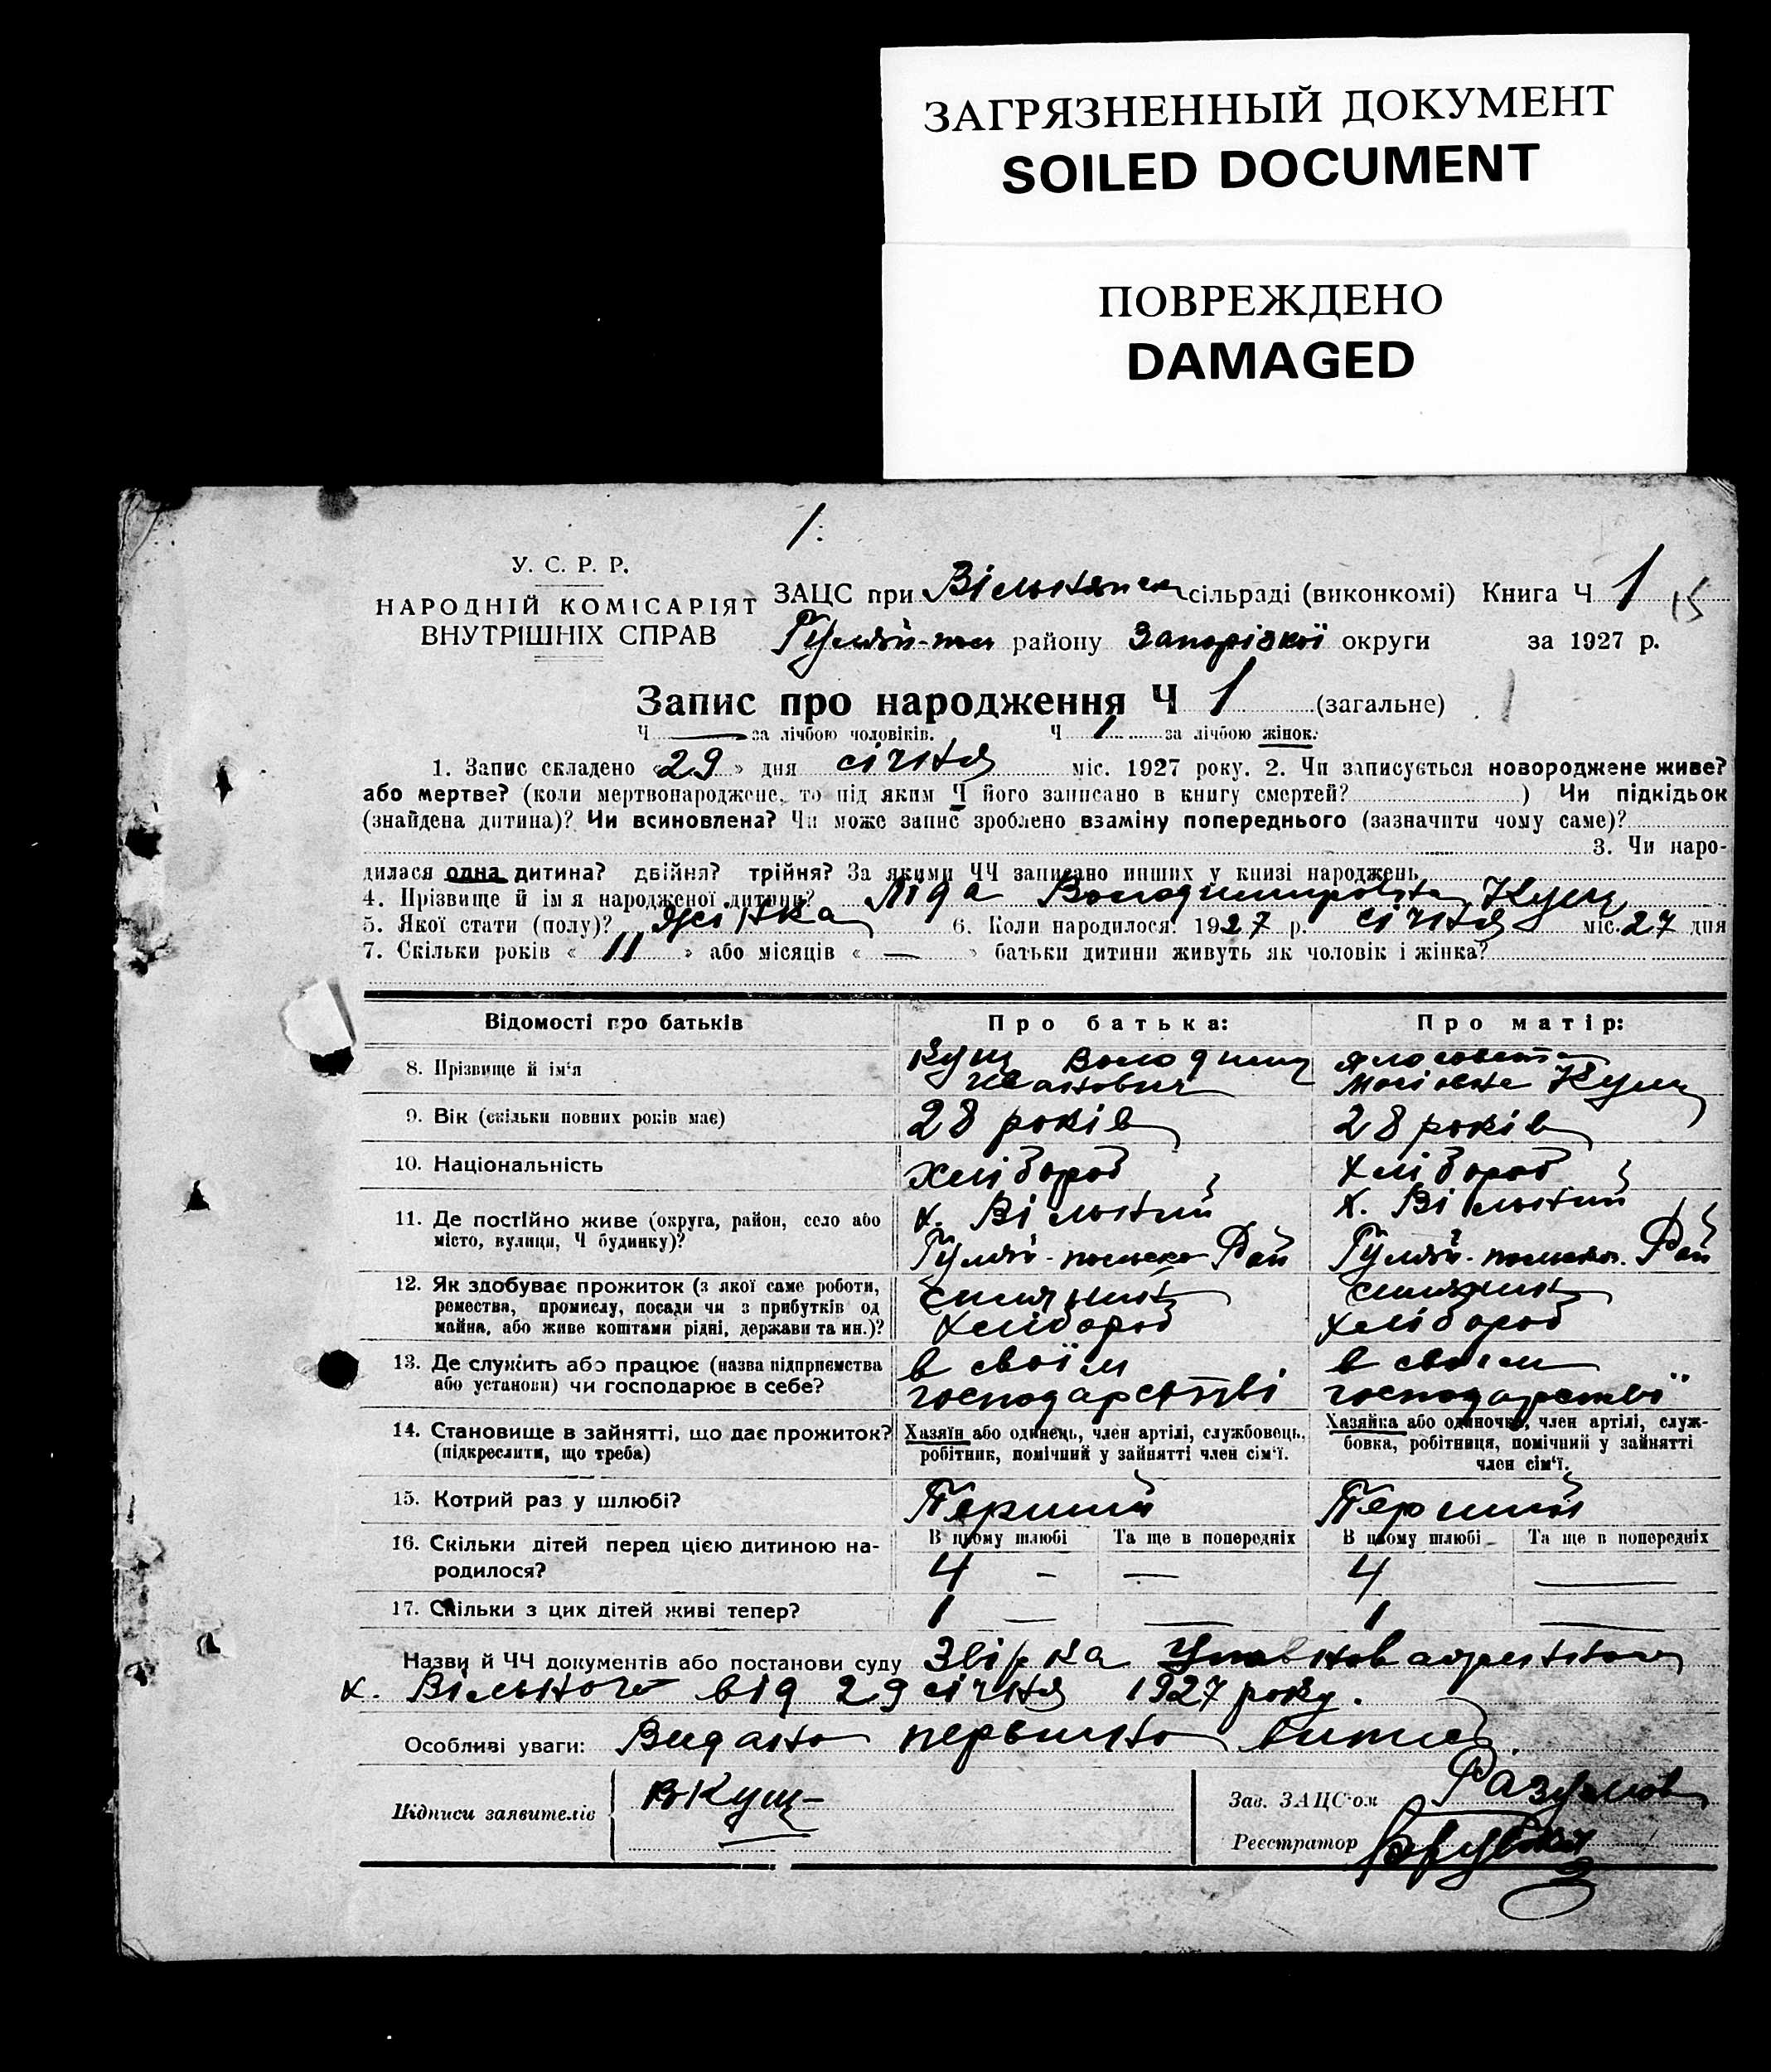 ЗАГРЯЗНЕННЫЙ ДОКУМЕНТ
SOILED DOCUMENT
ПОВРЕЖДЕНО
DAMAGED
1.
У. С. Р. Р.
НАРОДНІЙ КОМІСАРІЯТ
ВНУТРІШНІХ СПРАВ
ЗАЦС при сільраді (виконкомі) Книга Ч 1 15
району Запорізкої округи за 1927 р.
Запис про народження Ч 1 (загальне) 1
Ч — за лічбою чоловіків. Ч 1 за лічбою жінок.
1. Запис складено «29» дня січня міс. 1927 року. 2. Чи записується новороджене живе?
або мертве? (коли мертвонароджене, то під яким Ч його записано в книгу смертей? ) Чи підкідьок
(знайдена дитина)? Чи всиновлена? Чи може запис зроблено взаміну попереднього (зазначити чому саме)?
3. Чи наро-
дилася одна дитина? двійня? трійня? За якими ЧЧ записано инших у книзі народжень
4. Прізвище й ім я народженої дитини? Ліда Володимировна Кущ
5. Якої стати (полу)? Жінка 6. Коли народилося? 1927 р. січня міс. 27 дня
7. Скільки років « 11 » або місяців « — » батьки дитини живуть як чоловік і жінка?
Відомості про батьків Про батька: Про матір:
8. Прізвище й ім'я
Кущ Володимир
Іванович
Мосіовна Кущ
9. Вік (скільки повних років має) 28 років 28 років
10. Національність хлібороб хлібороб
11. Де постійно живе (округа, район, село або
місто, вулиця, Ч будинку)?
х. Вільний
Гуляй-польско Рай
х. Вільний
Гуляй-польсько. Рай
12. Як здобуває прожиток (з якої саме роботи,
ремества, промислу, посади чи з прибутків од
майна, або живе коштами рідні, держави та ин.)?
хлібороб
хлібороб
13. Де служить або працює (назва підприємства
або установи) чи господарює в себе?
в своїм
господарстві
в своїм
господарстві
14. Становище в зайнятті, що дає прожиток?
(підкреслити, що треба)
Хазяїн або одинець, член артілі, службовець,
робітник, помічний у зайнятті член сім'ї.
Хазяйка або одиночка, член артілі, служ-
бовка, робітниця, помічний у зайнятті
член сім'ї.
15. Котрий раз у шлюбі? Перший Перший
16. Скільки дітей перед цією дитиною на-
родилося?
В цьому шлюбі Та ще в попередніх В цьому шлюбі Та ще в попередніх
4 - — 4 —
17. Скільки з цих дітей живі тепер? 1 — — 1 —
Назви й ЧЧ документів або постанови суду
х. Вільного від 29 січня 1927 року.
Особливі уваги: Видано первично витяг.
Підписи заявителів ВКущ
Зав. ЗАЦС'ом Разумов
Реєстратор